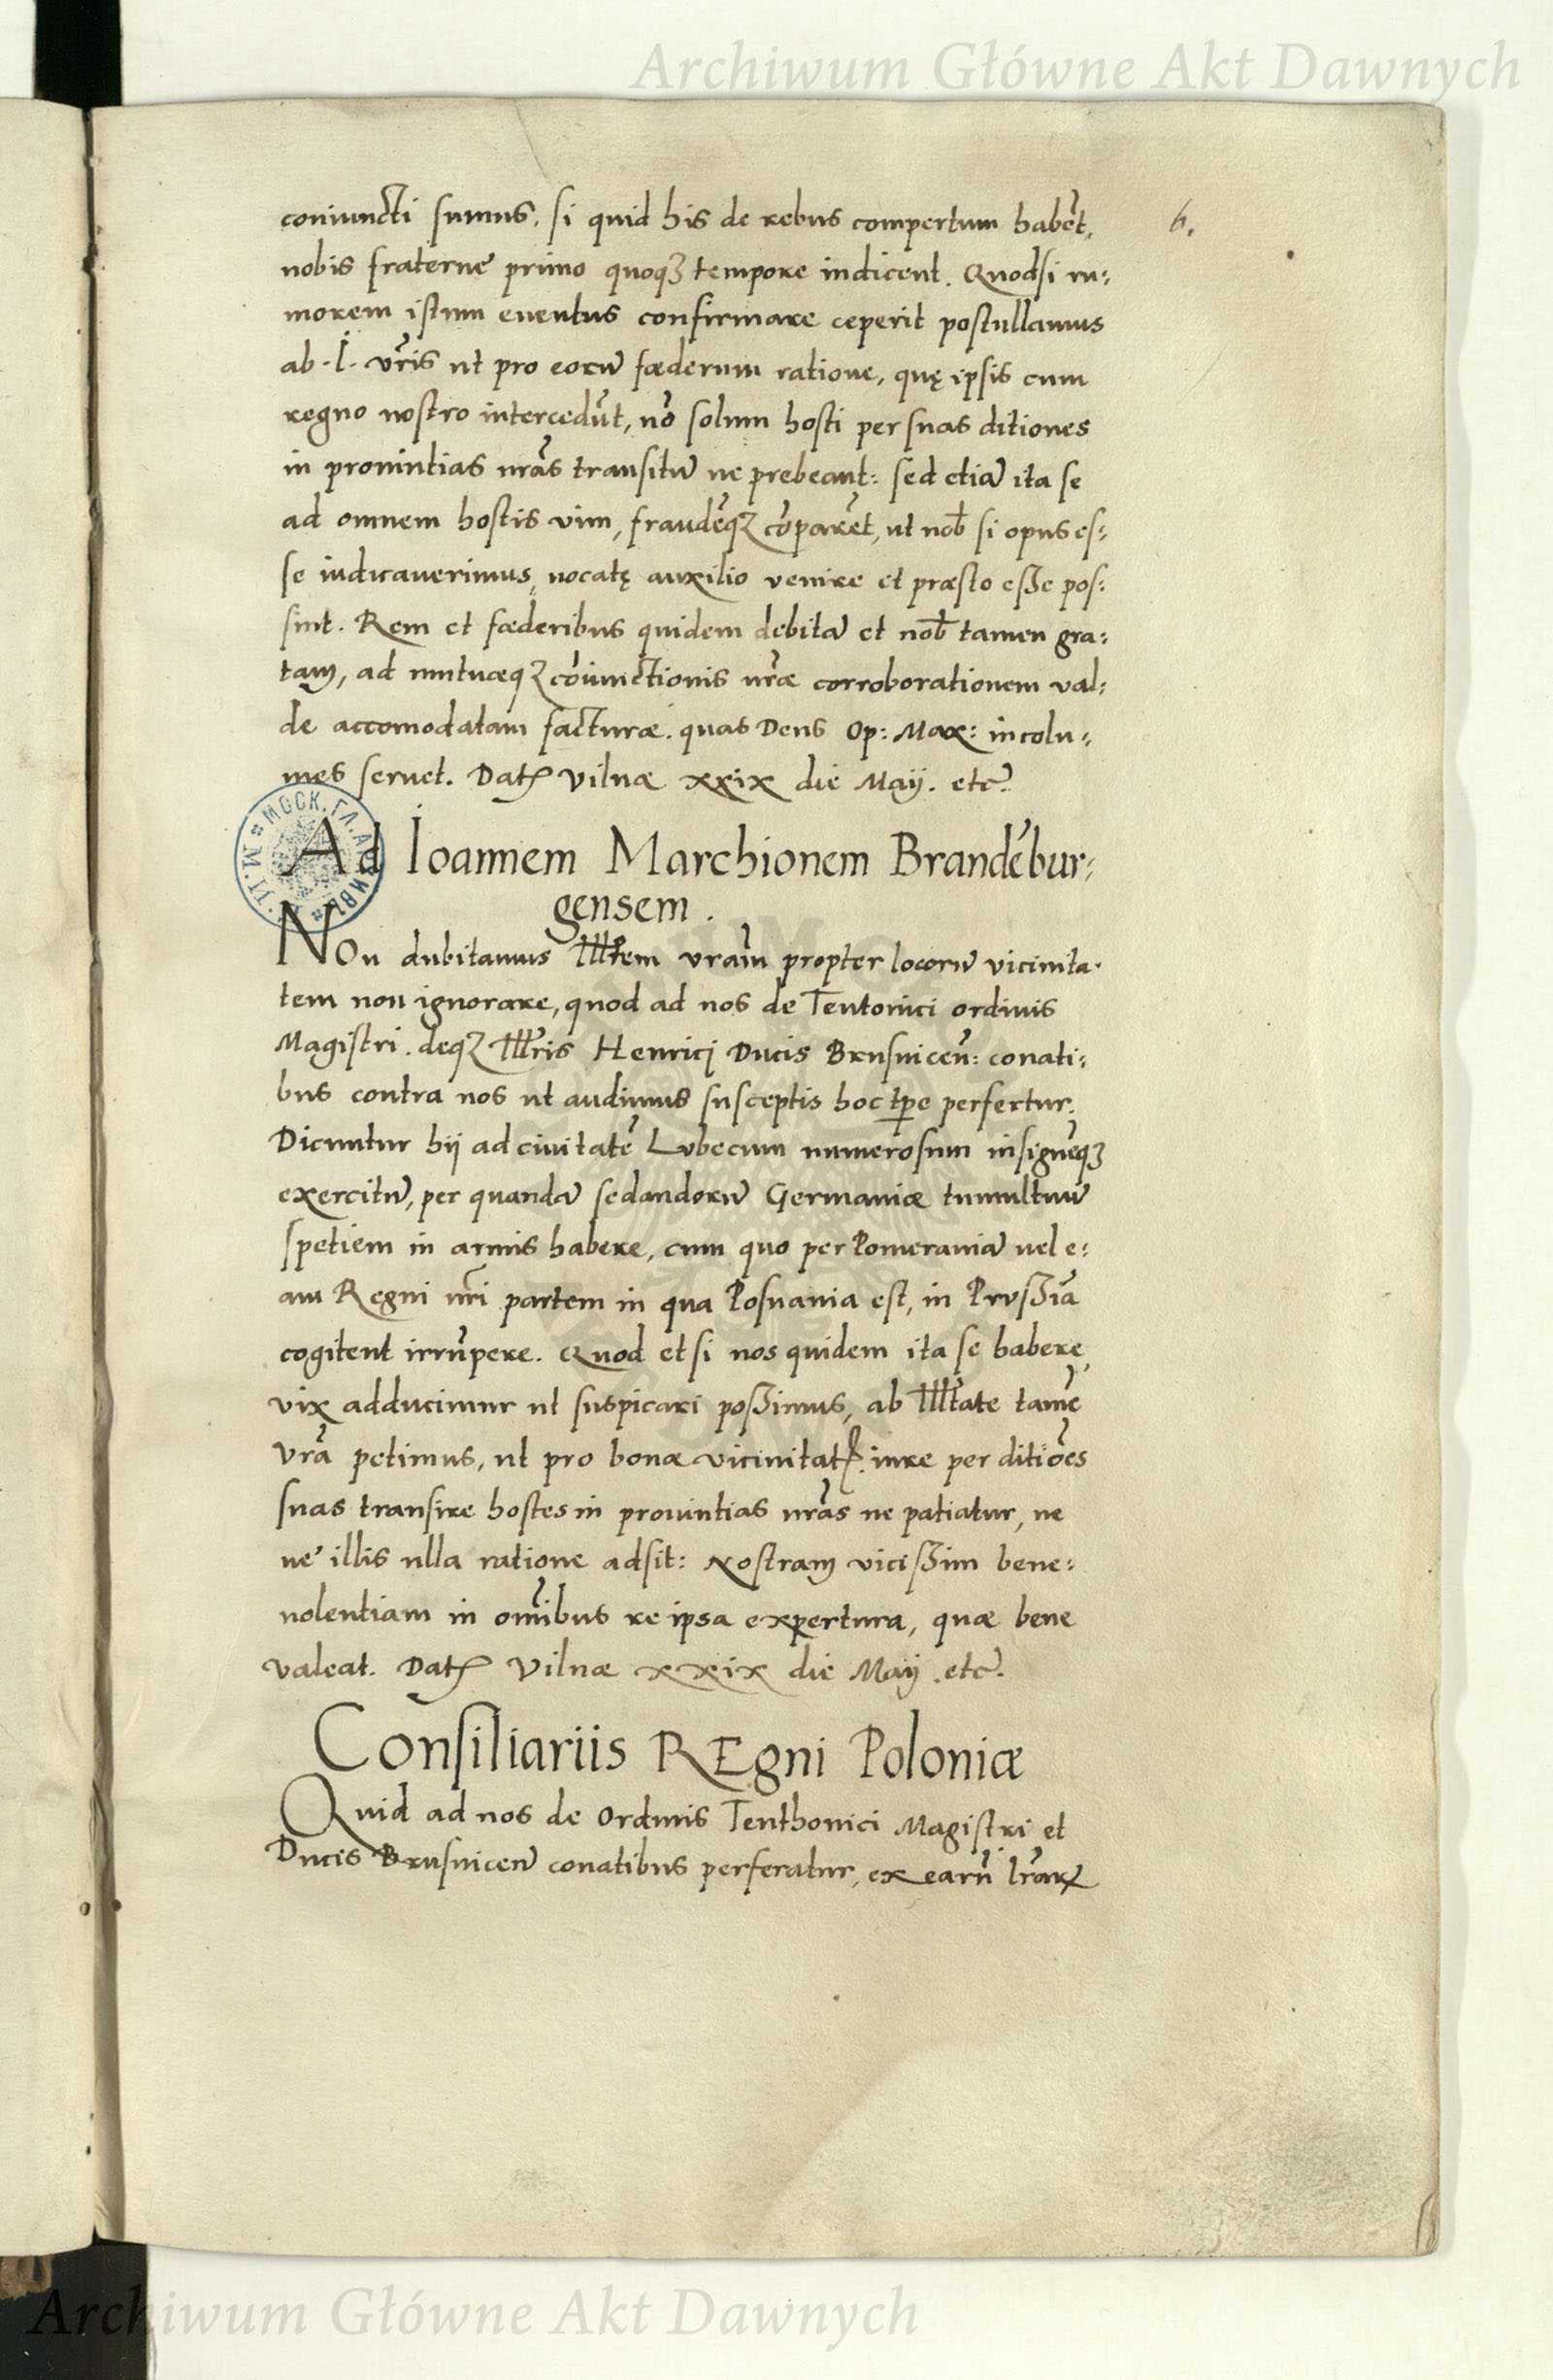 Archiwum Główne Akt Dawnych
6.
coniuncti sumus. si quid his de rebus compertum habēt,
nobis fraternè primo quoqȝ tempore indicent. Quodsi ru-
morem istum euentus confirmare ceperit postullamus
ab .I. vr̃is ut pro eorū fœderum ratione, quę ipsis cum
regno nostro intercedūt, nō solum hosti per suas ditiones
in prouintias nr̃as transitū ne prebeant: sed etiā ita se
ad omnem hostis vim, fraudēqȝ cōparēt, ut nob̃ si opus es-
se iudicauerimus, uocatę auxilio venire et præsto esse pos-
sint. Rem et fœderibus quidem debitā et nob̃ tamen gra-
tam, ad mutuæqȝ cōiunctionis nr̃æ corroborationem val-
de accomodatam facturæ. quas Deus Op: Max: incolu-
mes seruet. Datꝭ Vilnæ xxix die Maij. etc̃.
МОСК. ГЛ. АРХИВЪ М. И. Д.
Ad Ioannem Marchionem Brandēbur-
gensem.
NOn dubitamus Illr̃em vram̃ propter locorū vicinita-
tem non ignorare, quod ad nos de Teutonici ordinis
Magistri. deqȝ Illr̃is Henrici Ducis Brusuiceñ: conati-
bus contra nos ut audimus susceptis hoc tp̃e perfertur.
Dicuntur hij ad ciuitatē Lubecum numerosum insignēqȝ
exercitū, per quandā sedandorū Germaniæ tumultuū
spetiem in armis habere, cum quo per Pomeraniā uel e-
am Regni nr̃i partem in qua Posnania est, in Prussiā
cogitent irrūpere. Quod etsi nos quidem ita se habere
vix adducimur ut suspicari possimus, ab Illr̃tate tamē
vrã petimus, ut pro bonæ vicinitatꝭ iure per ditiōes
suas transire hostes in prouintias nr̃as ne patiatur, ne
ue illis ulla ratione adsit: Nostram vicissim bene-
uolentiam in om̃ibus re ipsa expertura, quæ bene
valeat. Datꝭ Vilnæ xxix die Maij .etc̃.
Consiliariis REgni Poloniæ
Quid ad nos de Ordinis Teuthonici Magistri et
Ducis Brusuiceñ conatibus perferatur, ex earū lr̃arꝝ
Archiwum Główne Akt Dawnych